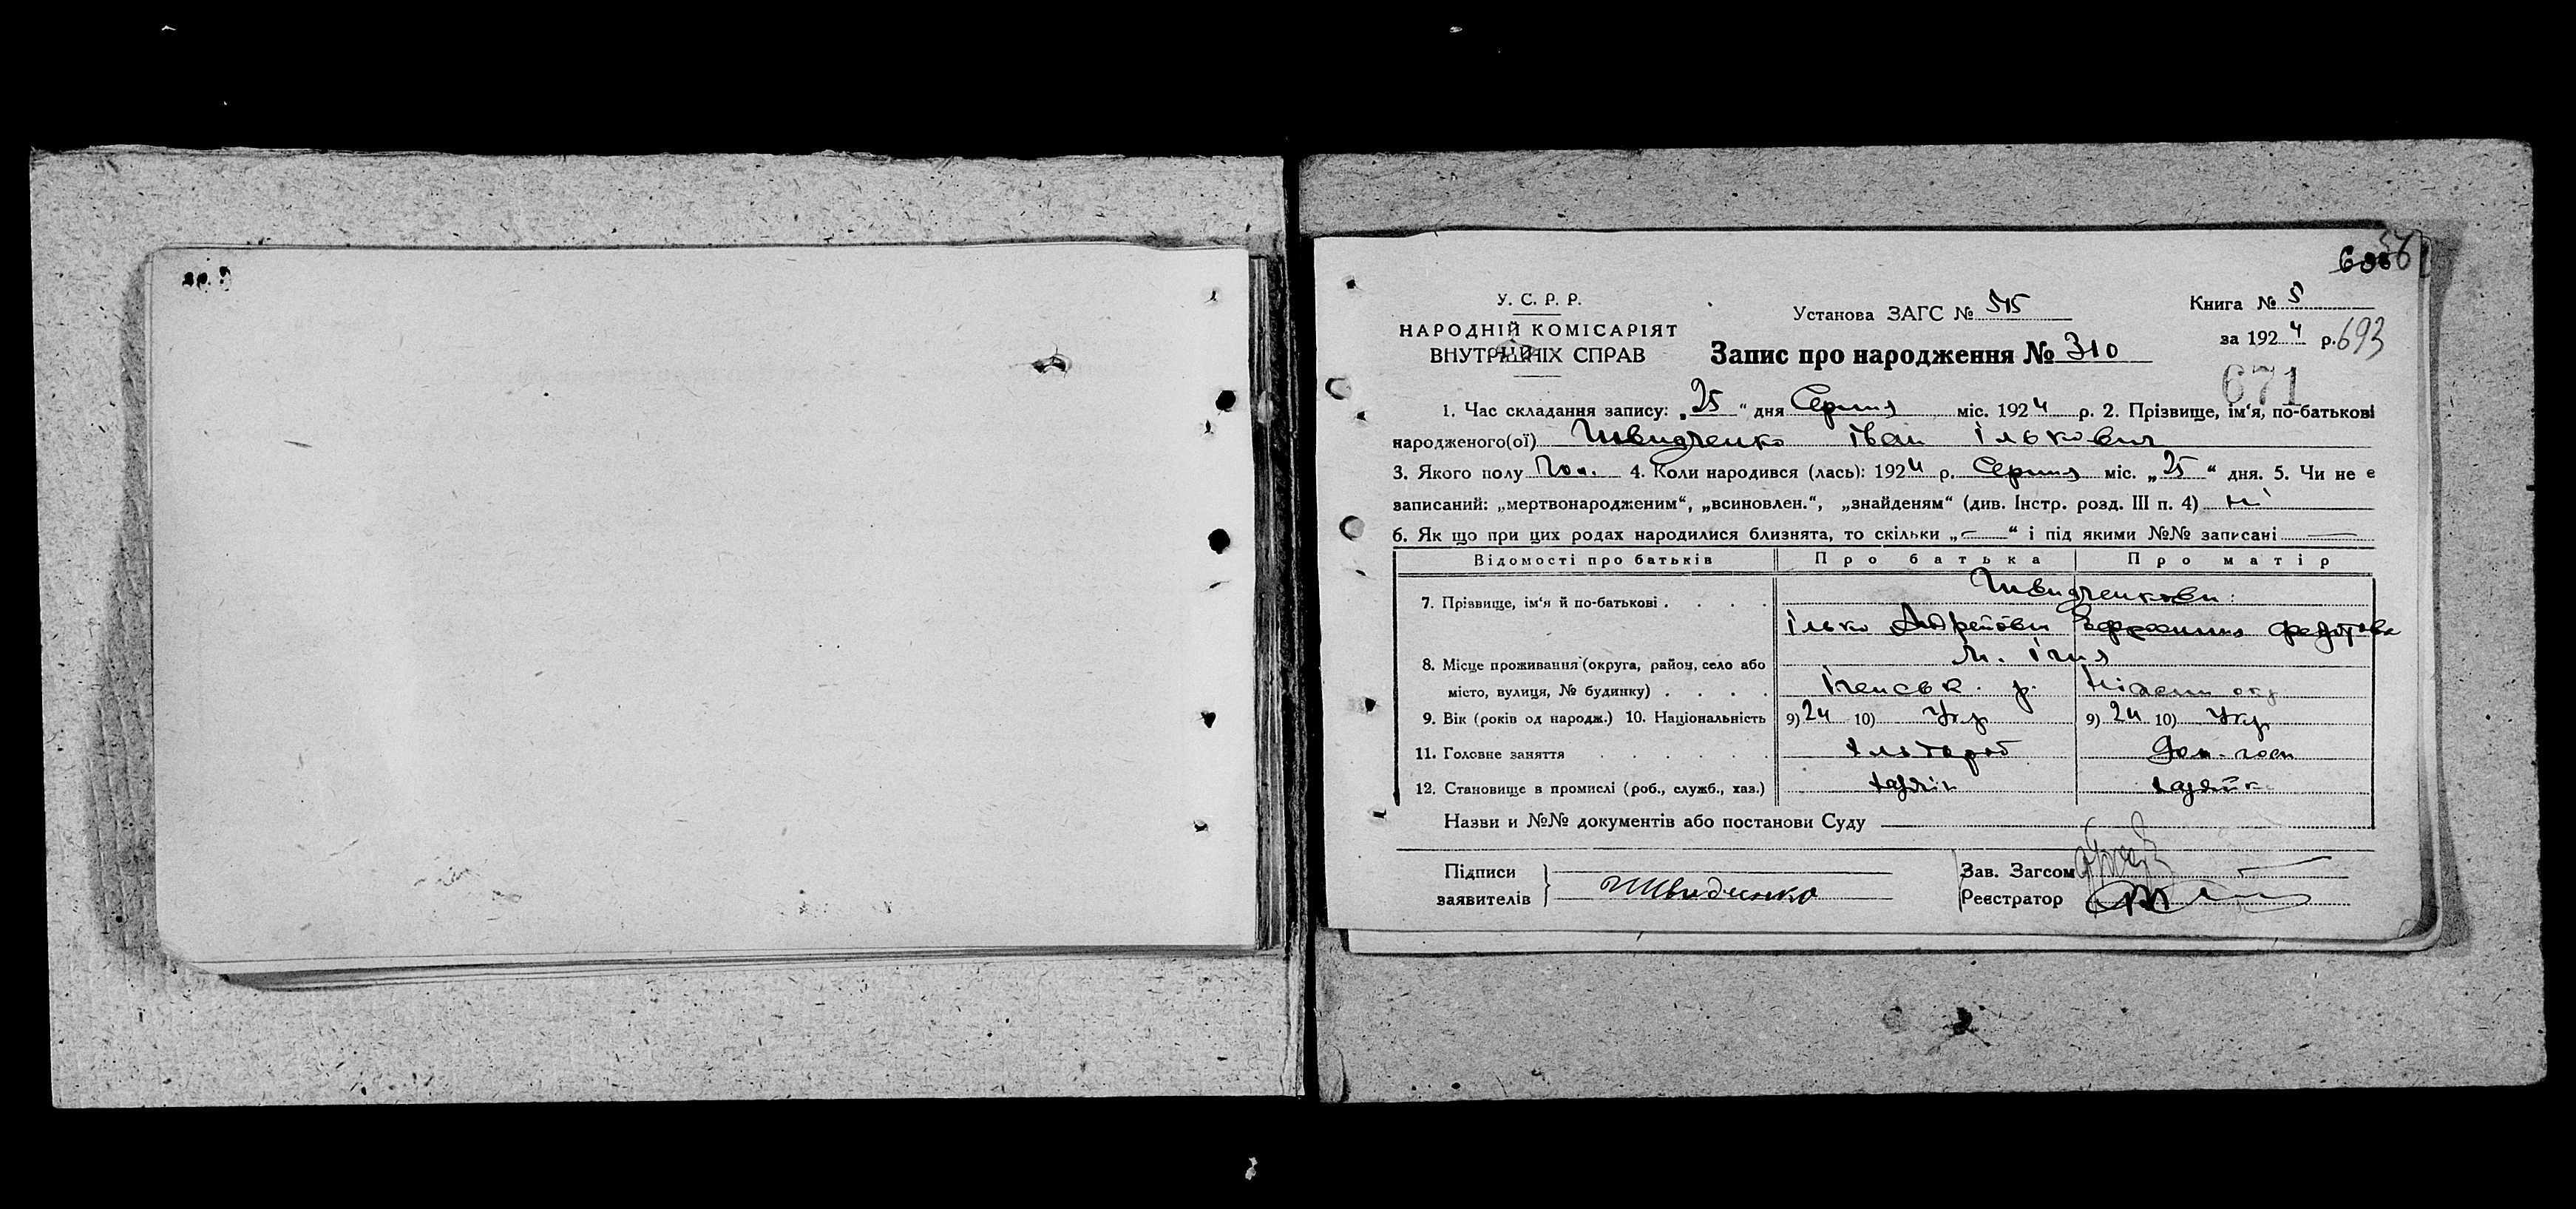 У. С. Р. Р.
НАРОДНІЙ КОМІСАРІЯТ
ВНУТРІШНІХ СПРАВ
Установа ЗАГС №
Книга № 5
за 1924 р. 693
Запис про народження № 310
671
1. Час складання запису: „25“ дня Серпня міс. 1924 р. 2. Прізвище, ім‘я, по-батькові
народженого(ої) Швидченко ІванІлькович
3. Якого полу Чол. 4. Коли народився (лась): 1924 р. Серпня міс. „25“ дня. 5. Чи не є
записаний: „мертвонародженим“, „всиновлен.“, „знайденям“ (див. Інстр. розд. III п. 4) ні
6. Як що при цих родах народилися близнята, то скільки „—“ і під якими №№ записані —
Відомості про батьків Про батька Про матір
7. Прізвище, ім‘я й по-батькові . . . . Швидченкови:
Ілько Андрейович Єфросиния Федотова
8. Місце проживання (округа, район, село або м. Ічня
місто, вулиця, № будинку) . . . . Іченськ. р. Ніженн окр
9. Вік (років од народж.) 10. Національність 9) 24 10) Укр 9) 24 10) Укр
11. Головне заняття . . . . . . Хлібороб Дом. госп
12. Становище в промислі (роб., служб., хаз.) хазяїн хазяйка
Назви и №№ документів або постанови Суду
Підписи
заявителів Швидченко
Зав. Загсом
Реєстратор